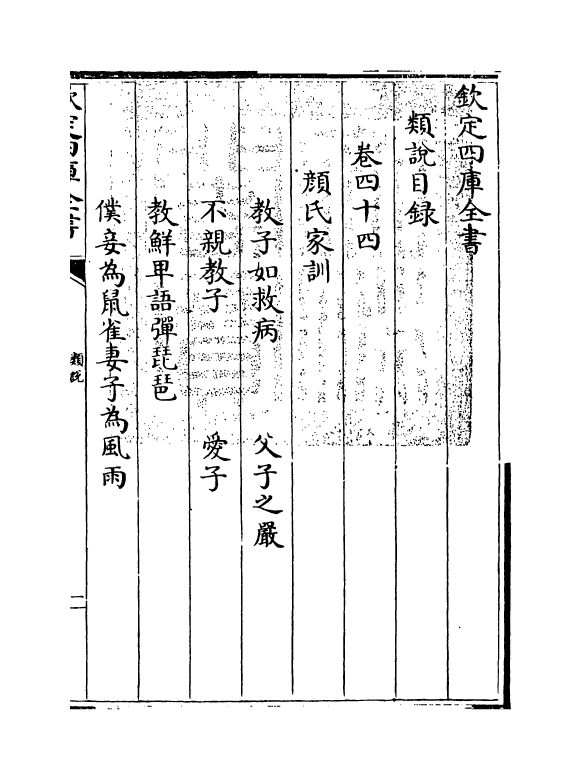 欽定四庫全書
類說目録
卷四十四
顔氏家訓
教子如救病 父子之嚴
不親教子 愛子
教鮮卑語彈琵琶
僕妾為鼠雀妻子為風雨
欽定四庫全書
類說
一